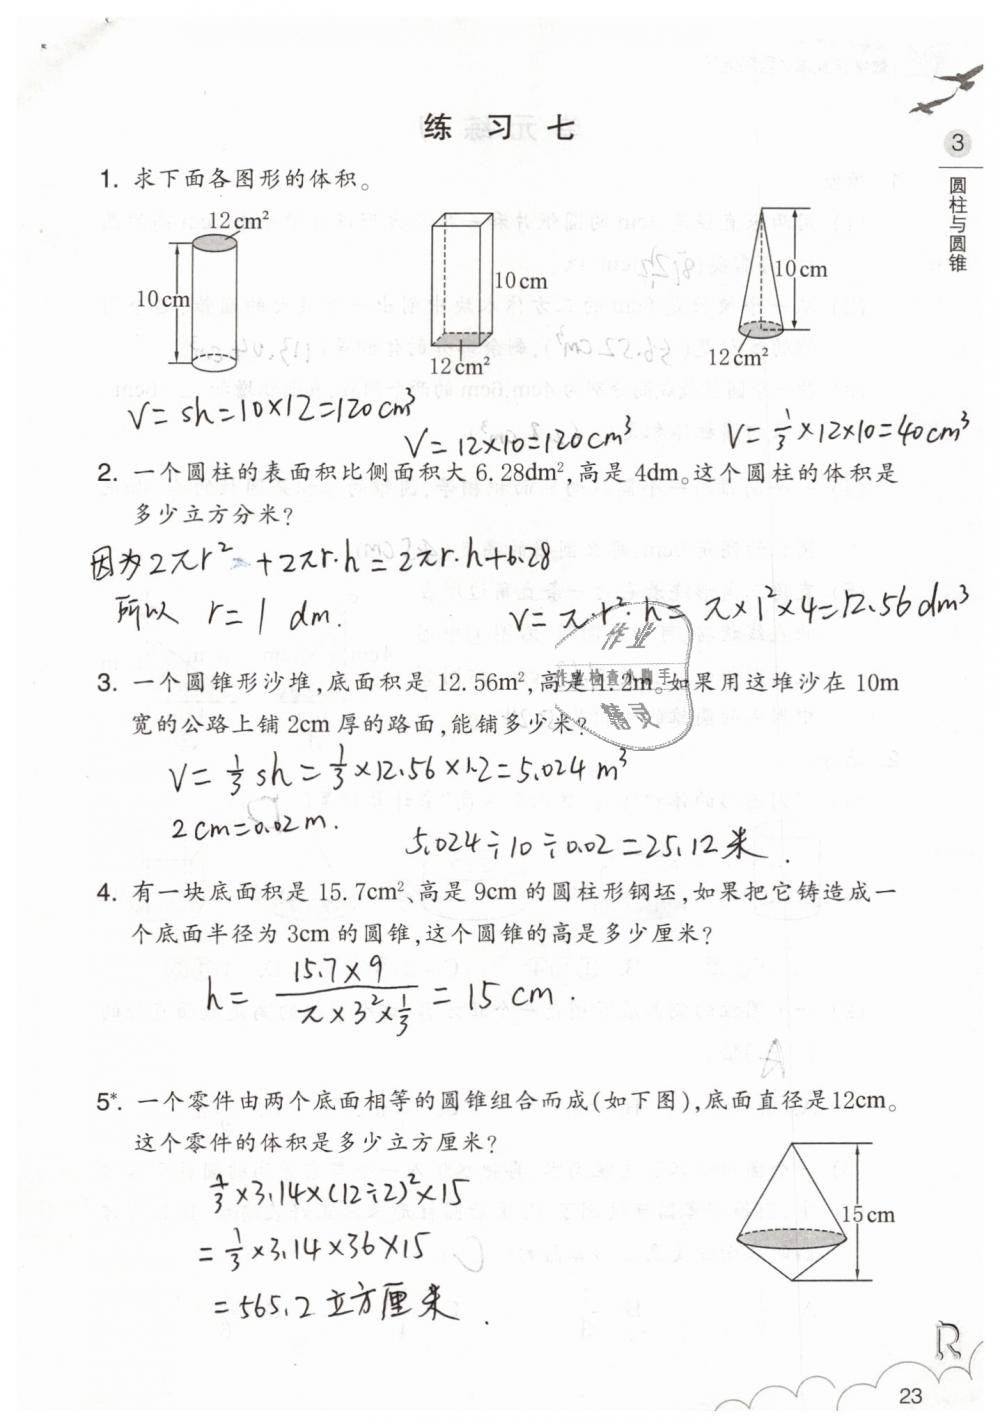 练 习 七
3
圆柱与圆锥
1. 求下面各图形的体积。
12cm²
10cm
10cm
12cm²
10cm
12cm²
V=sh=10×12=120cm³
V=12×10=120cm³
V=1/3×12×10=40cm³
2. 一个圆柱的表面积比侧面积大 6.28dm²,高是 4dm。这个圆柱的体积是
多少立方分米?
因为2πr²+2πr·h=2πr·h+6.28
所以 r=1 dm.
V=πr²·h=π×1²×4=12.56dm³
作业
作业检查小助手
精灵
3. 一个圆锥形沙堆,底面积是 12.56m²,高是 1.2m。如果用这堆沙在 10m
宽的公路上铺 2cm 厚的路面,能铺多少米?
V=1/3sh=1/3×12.56×1.2=5.024m³
2cm=0.02m.
5.024÷10÷0.02=25.12米.
4. 有一块底面积是 15.7cm²、高是 9cm 的圆柱形钢坯,如果把它铸造成一
个底面半径为 3cm 的圆锥,这个圆锥的高是多少厘米?
h=15.7×9/π×3²×1/3=15cm.
5*. 一个零件由两个底面相等的圆锥组合而成(如下图),底面直径是12cm。
这个零件的体积是多少立方厘米?
1/3×3.14×(12÷2)²×15
=1/3×3.14×36×15
=565.2立方厘米.
15cm
R
23